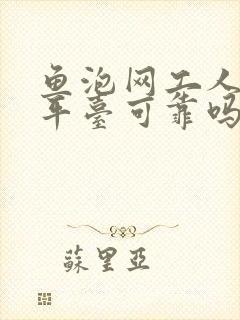 鱼泡网工人
平臺可靠吗
蘇里亞